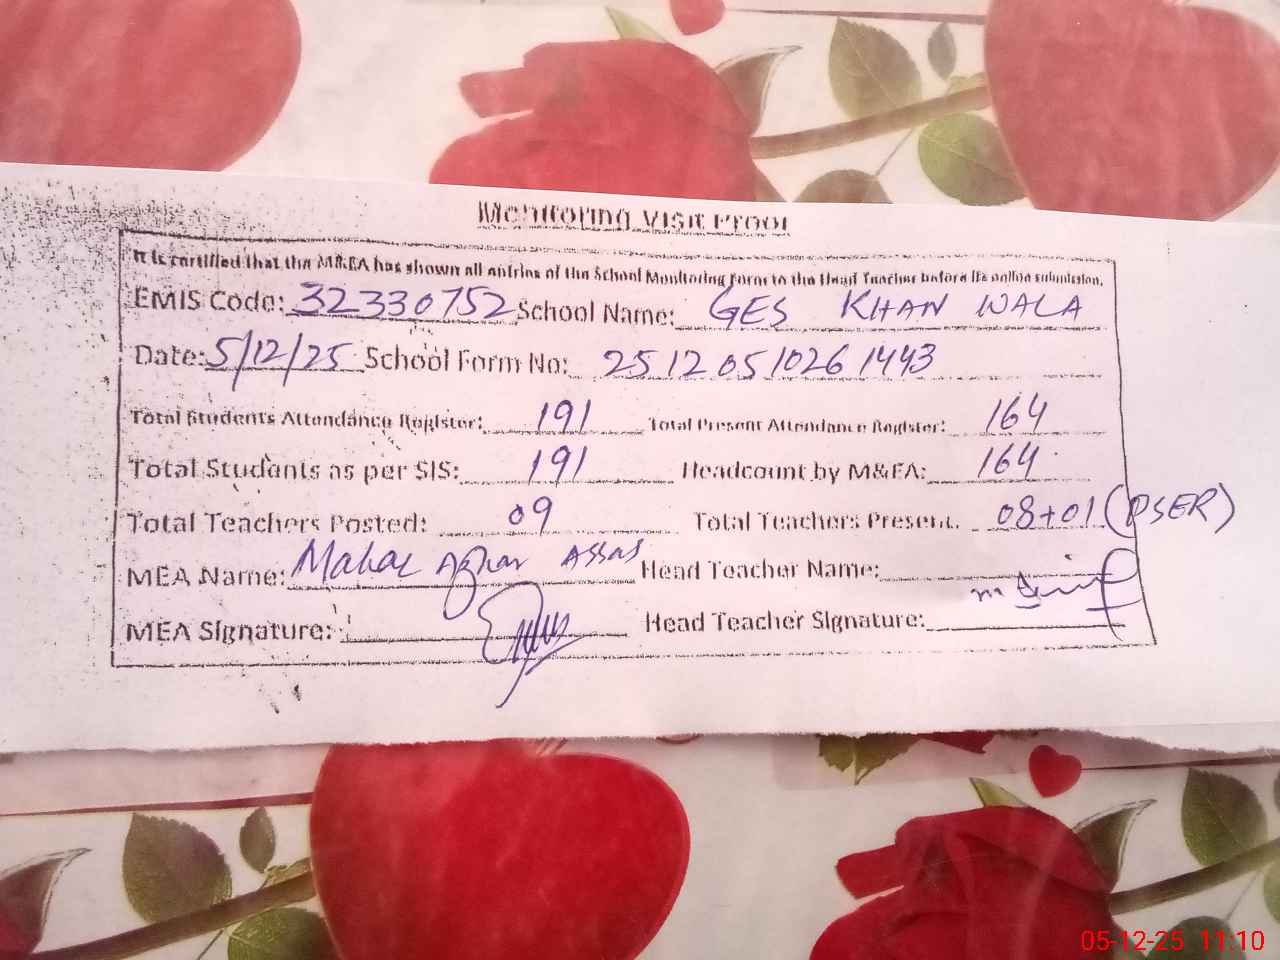 Monitoring Visit Proof
It is certified that the M&EA has shown all entries of the School Monitoring Form to the Head Teacher before its online submission.
EMIS Code: 32330752 School Name: GES KHAN WALA
Date: 5/12/25 School Form No: 25 12 05 1026 1443
Total Students Attendance Register: 191 Total Present Attendance Register: 164
Total Students as per SIS: 191 Headcount by M&EA: 164
Total Teachers Posted: 09 Total Teachers Present: 08+01 (PSER)
MEA Name: Mahar Head Teacher Name:
MEA Signature: Head Teacher Signature:
05-12-25 11:10